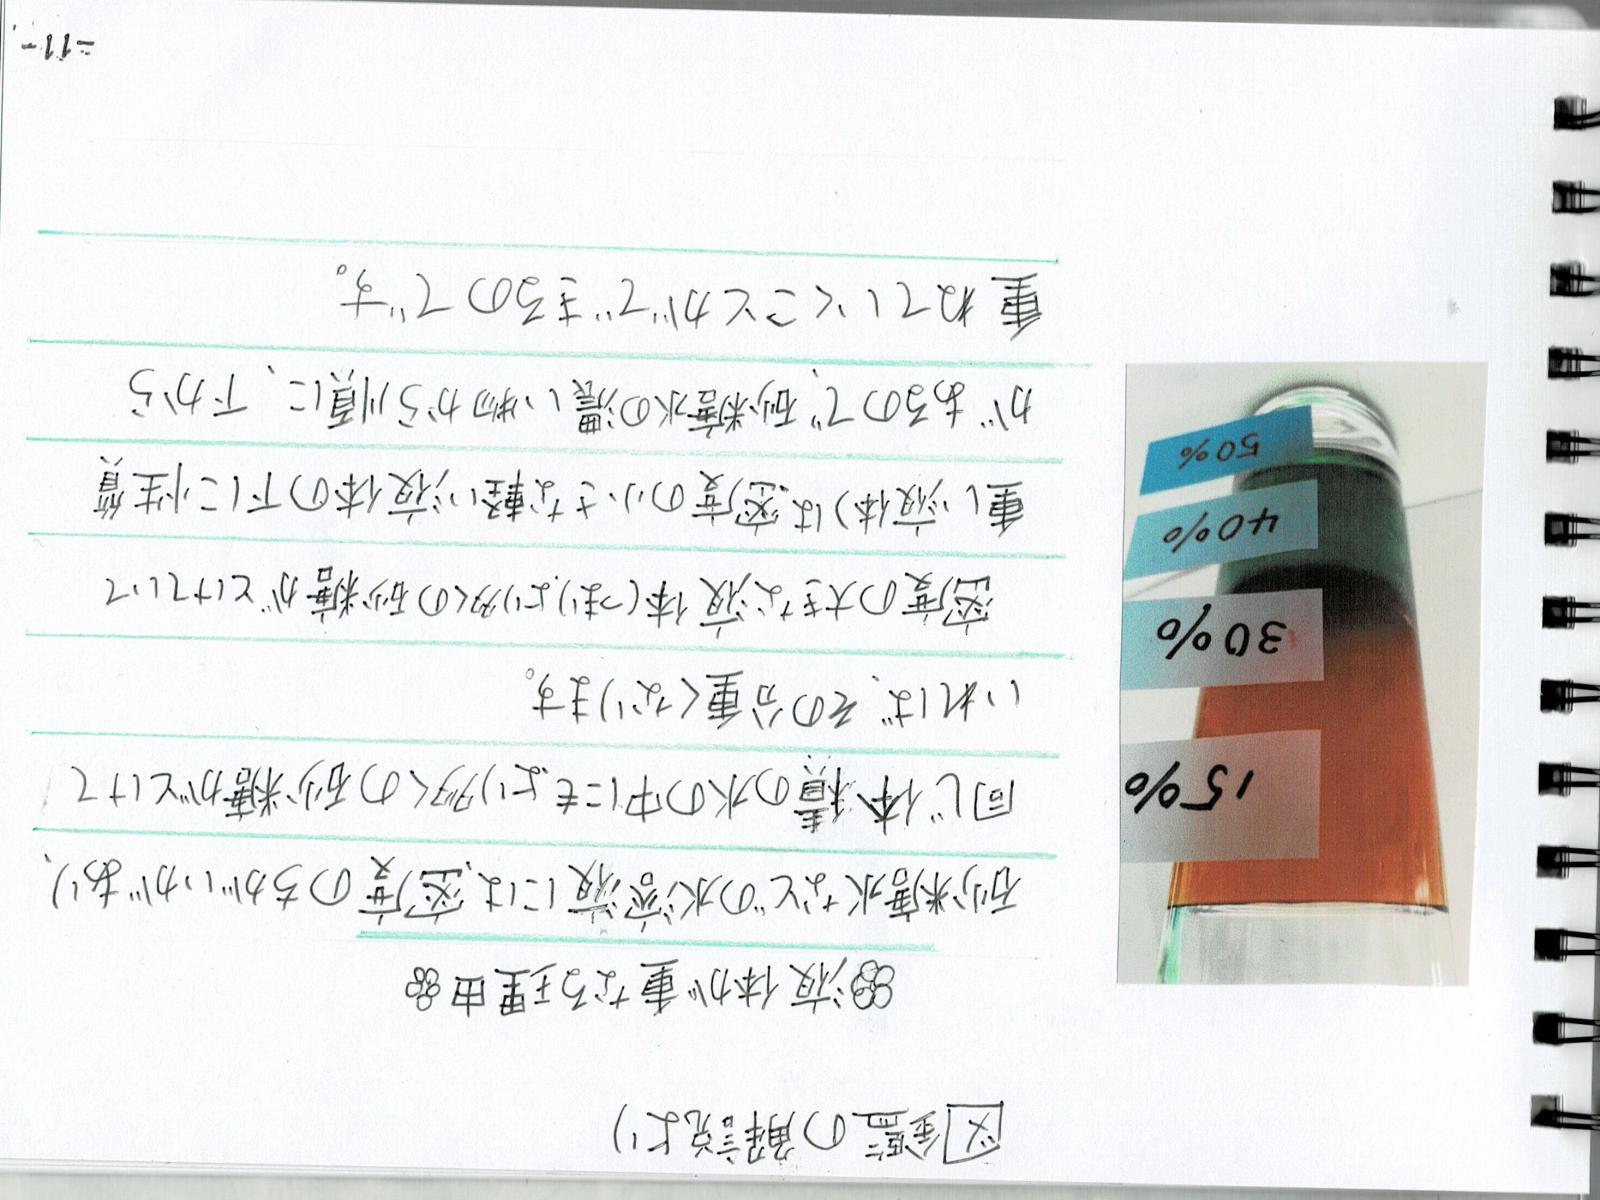 図鑑の解説より
液体が重なる理由
砂糖水などの水溶液には、密度のちがいがあり、
同じ体積の水の中にも、より多くの砂糖がとけて
いれば、その分重くなります。
密度の大きな液体(つまり、より多くの砂糖がとけていて
重い液体)は、密度の小さな軽い液体の下に 性質
があるので、砂糖水の濃い物から順に、下から
重ねていくことができるのです。
15%
30%
40%
50%
-11-